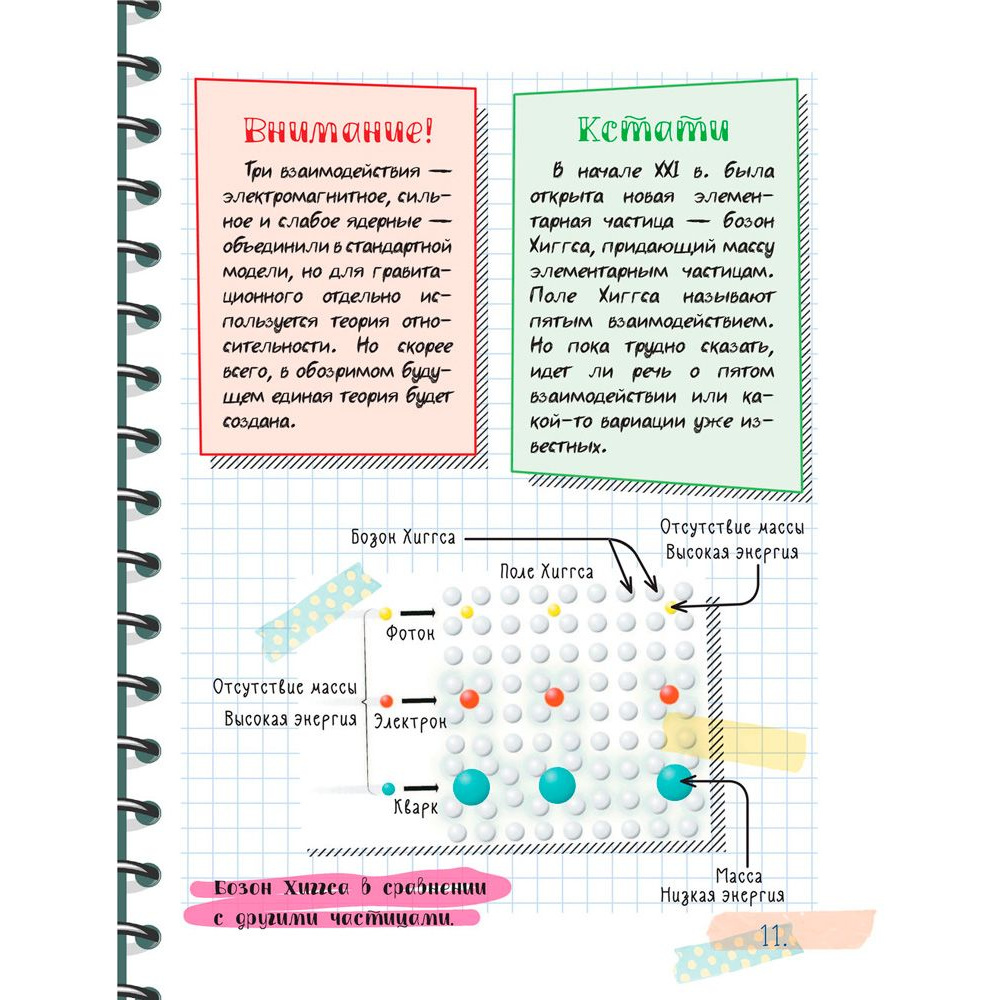 Внимание!
Три взаимодействия —
электромагнитное, силь-
ное и слабое ядерные —
объединили в стандартной
модели, но для гравита-
ционного отдельно ис-
пользуется теория отно-
сительности. Но скорее
всего, в обозримом буду-
щем единая теория будет
создана.
Кстати
В начале XXI в. была
открыта новая элемен-
тарная частица — бозон
Хиггса, придающий массу
элементарным частицам.
Поле Хиггса называют
пятым взаимодействием.
Но пока трудно сказать,
идет ли речь о пятом
взаимодействии или ка-
кой-то вариации уже из-
вестных.
Бозон Хиггса
Отсутствие массы
Высокая энергия
Поле Хиггса
Фотон
Отсутствие массы
Высокая энергия
Электрон
Кварк
Масса
Низкая энергия
Бозон Хиггса в сравнении
с другими частицами.
11.